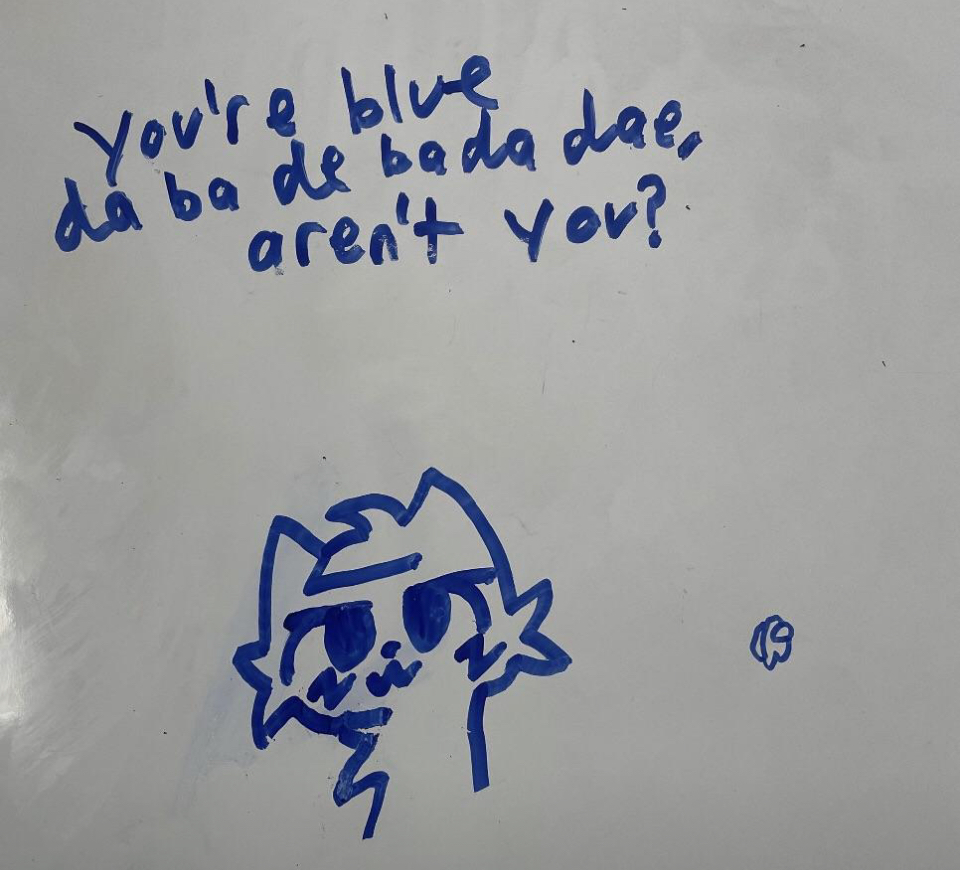 You're blue
da ba de ba da dae,
aren't you?